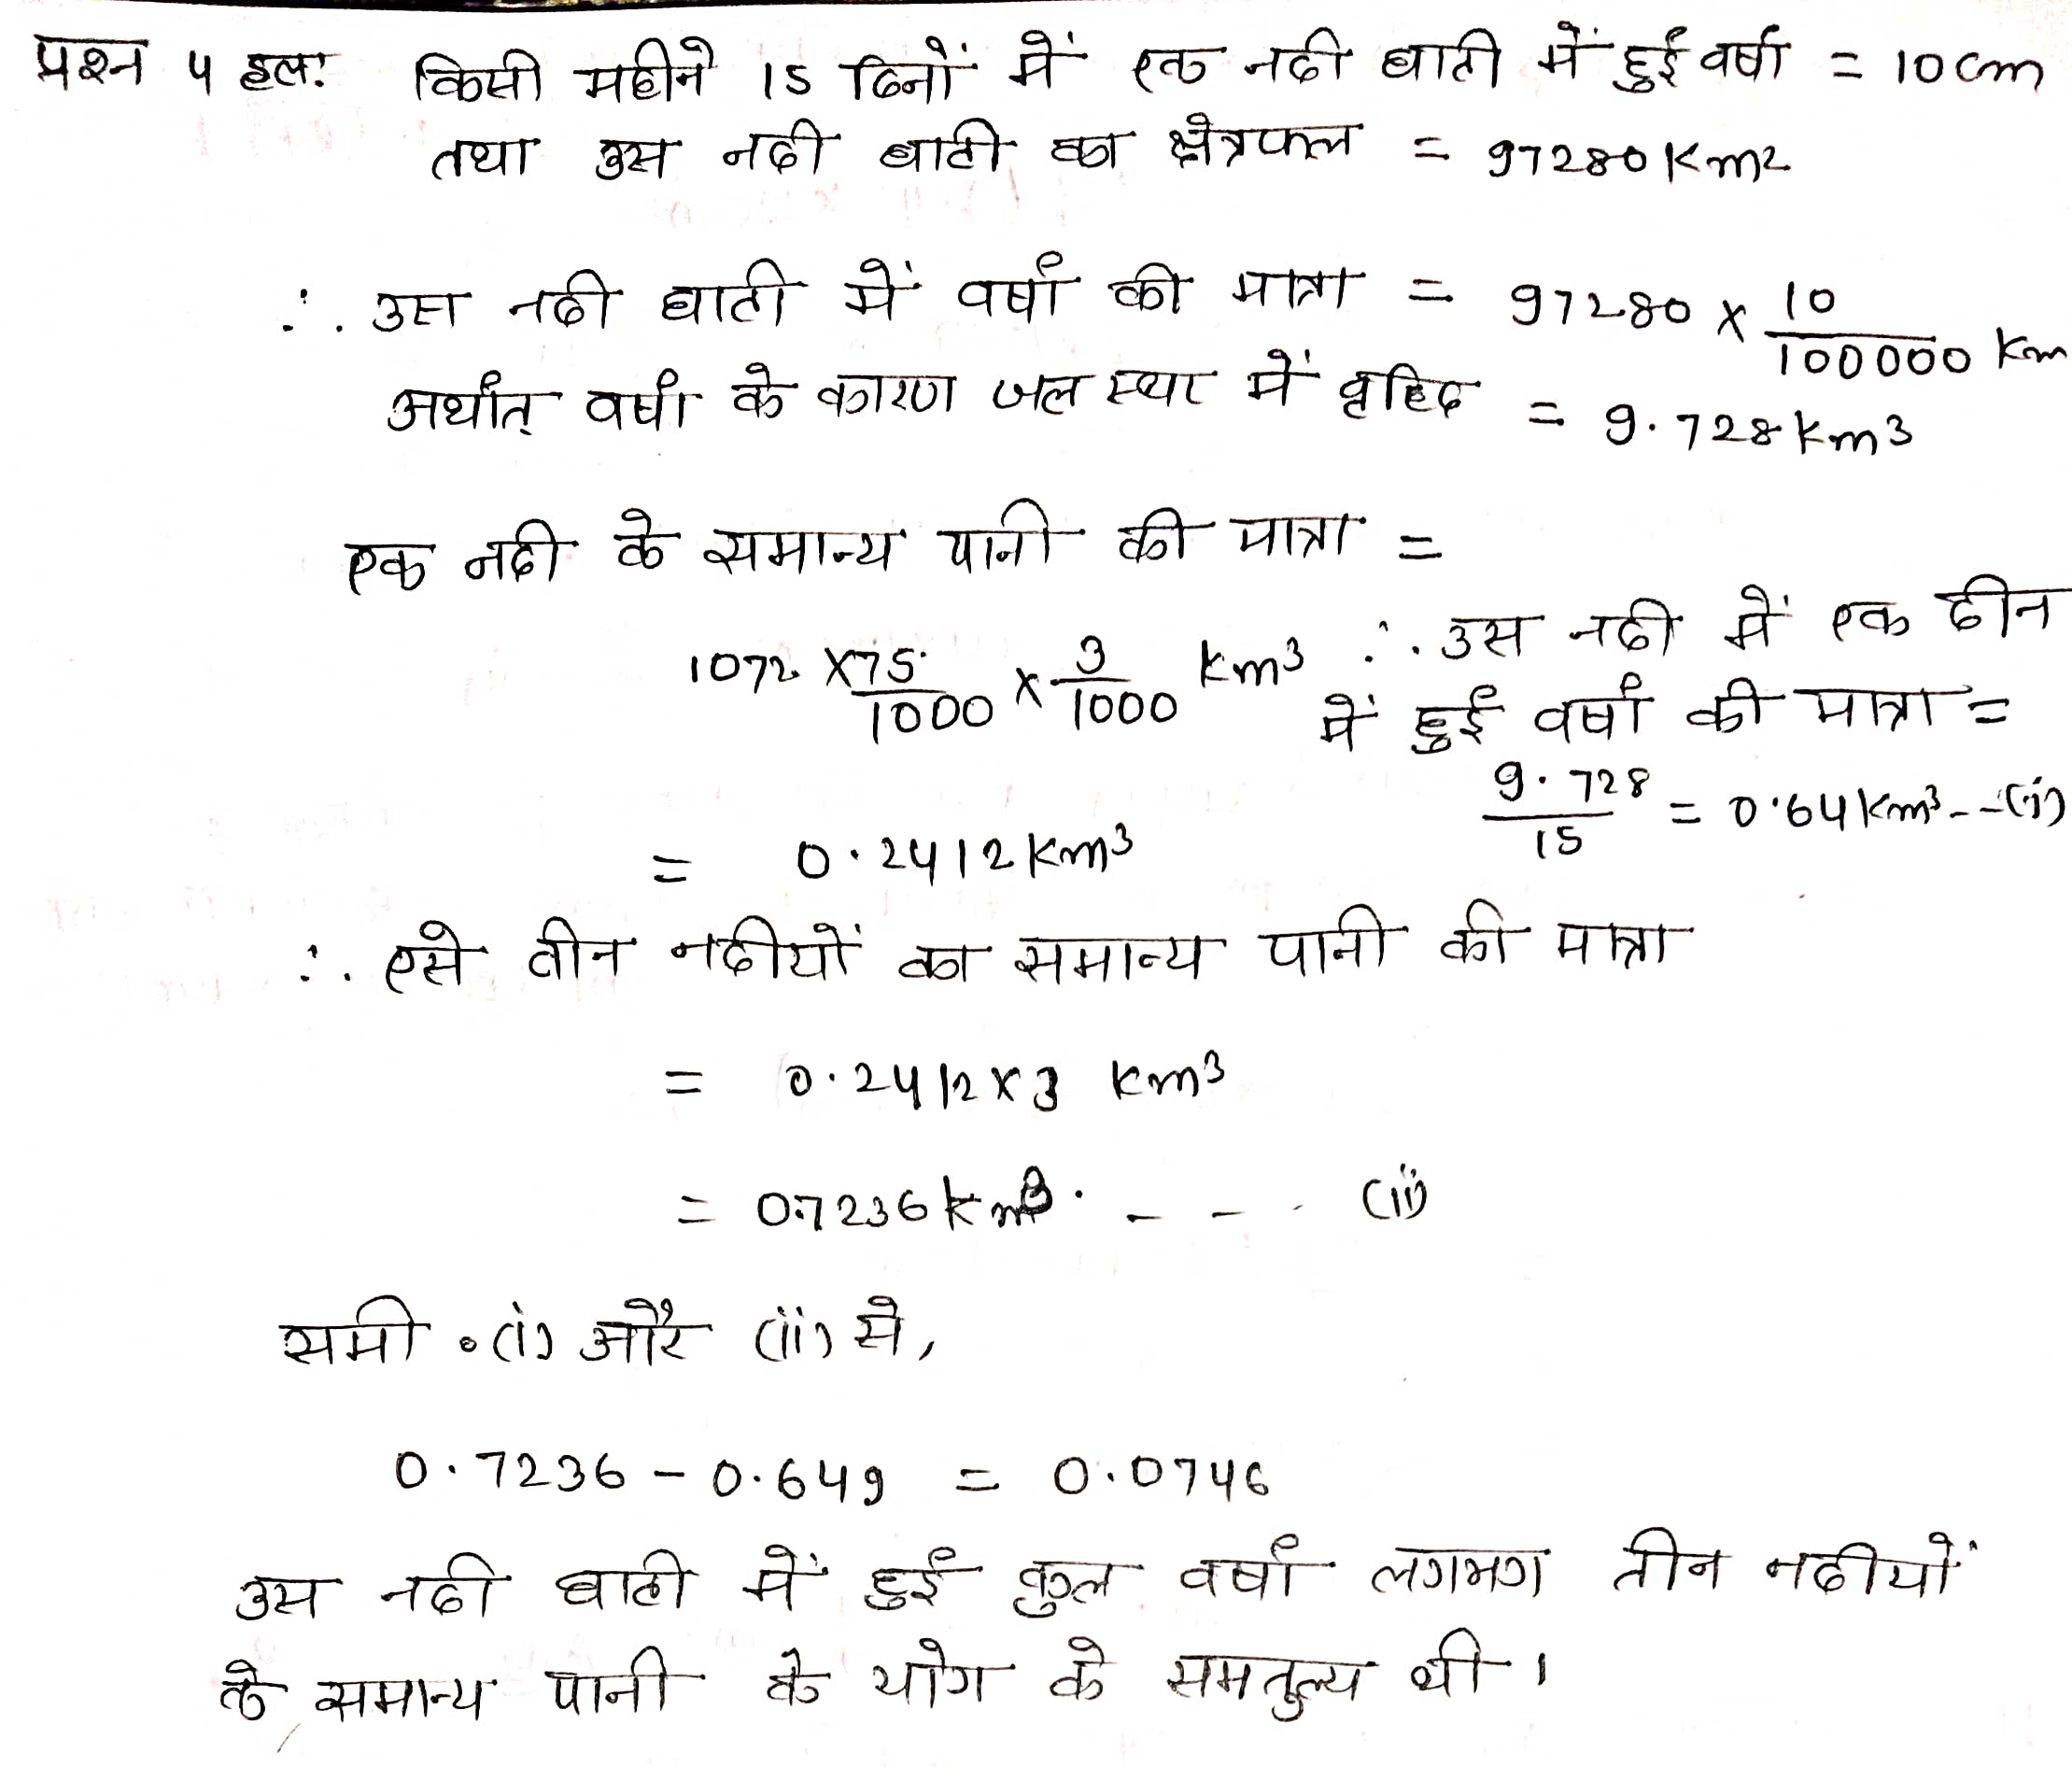 प्रश्न 4 हल: किसी महीने 15 दिनों में एक नदी घाटी में हुई वर्षा = 10 cm
तथा उस नदी घाटी का क्षेत्रफल = 97280 Km2
∴ उस नदी घाटी में वर्षा की मात्रा = 97280 × 10/100000 Km
अर्थात् वर्षा के कारण जल स्थर में वृद्धि = 9.728 Km3
एक नदी के समान्य पानी की मात्रा =
1072 × 75/1000 × 3/1000 Km3
= 0.2412 Km3
∴ उस नदी में एक दीन
में हुई वर्षा की मात्रा =
9.728/15 = 0.64 Km3 -- (i)
∴ एसे तीन नदीयों का समान्य पानी की मात्रा
= 0.2412 × 3 Km3
= 0.7236 Km3. - - - (ii)
समी॰ (i) और (ii) से,
0.7236 - 0.649 = 0.0746
उस नदी घाटी में हुई कुल वर्षा लगभग तीन नदीयों
के समान्य पानी के योग के समतुल्य थी।